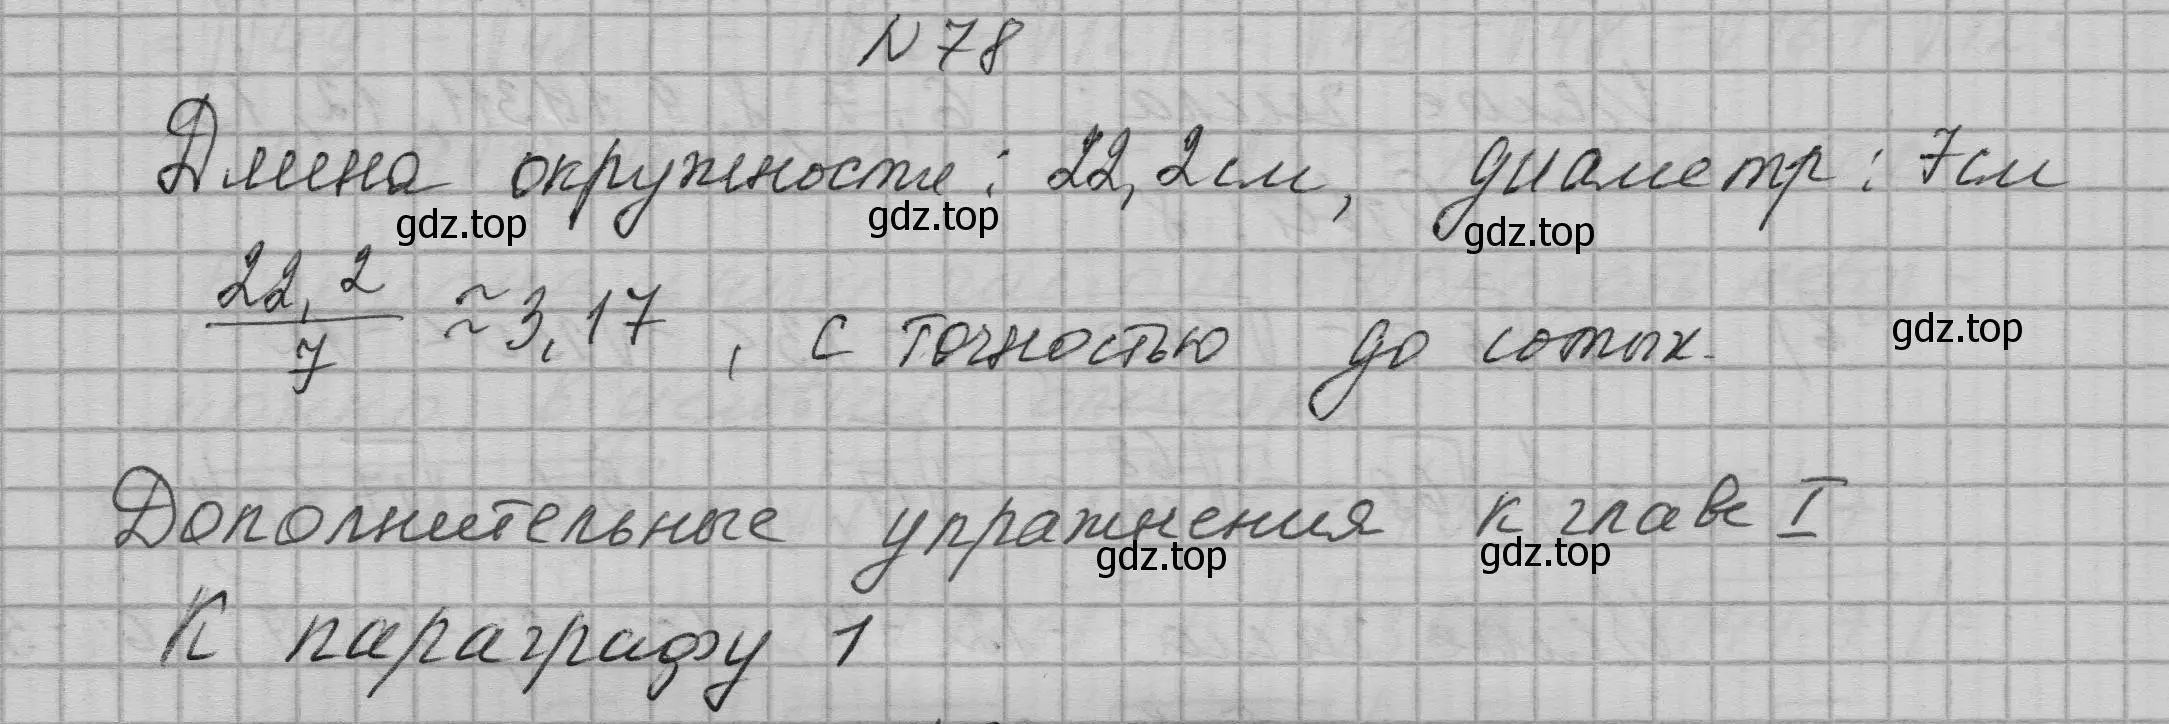 N 78
Длина окружности: 22,2 см, диаметр: 7 см
gdz.top gdz.top gdz.top
22,2/7 ≈ 3,17, с точностью до сотых.
gdz.top
Дополнительные упражнения к главе I
gdz.top gdz.top
К параграфу 1